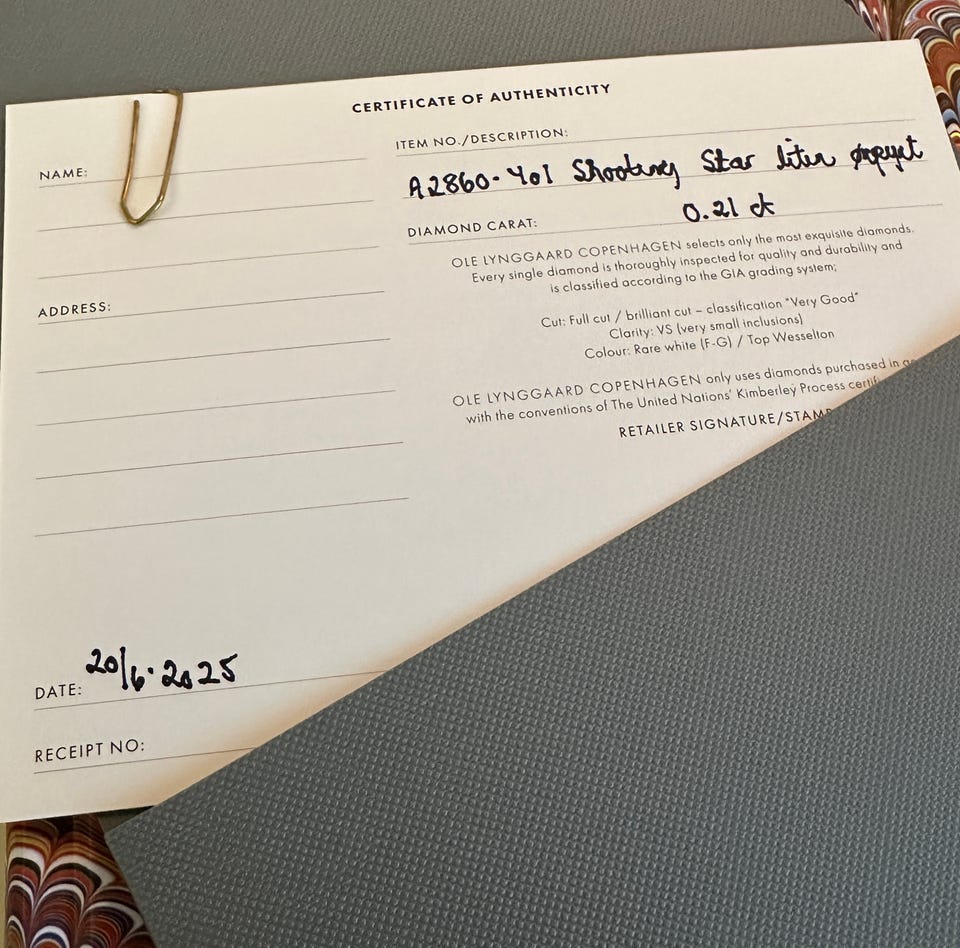 CERTIFICATE OF AUTHENTICITY
NAME:
ADDRESS:
DATE: 20/6·2025
RECEIPT NO:
ITEM NO./DESCRIPTION:
A2860-401 Shooting Star liten
DIAMOND CARAT: 0.21 ct
OLE LYNGGAARD COPENHAGEN selects only the most exquisite diamonds.
Every single diamond is thoroughly inspected for quality and durability and
is classified according to the GIA grading system;
Cut: Full cut / brilliant cut – classification "Very Good"
Clarity: VS (very small inclusions)
Colour: Rare white (F-G) / Top Wesselton
OLE LYNGGAARD COPENHAGEN only uses diamonds purchased in
with the conventions of The United Nations' Kimberley Process
RETAILER SIGNATURE/STAMP